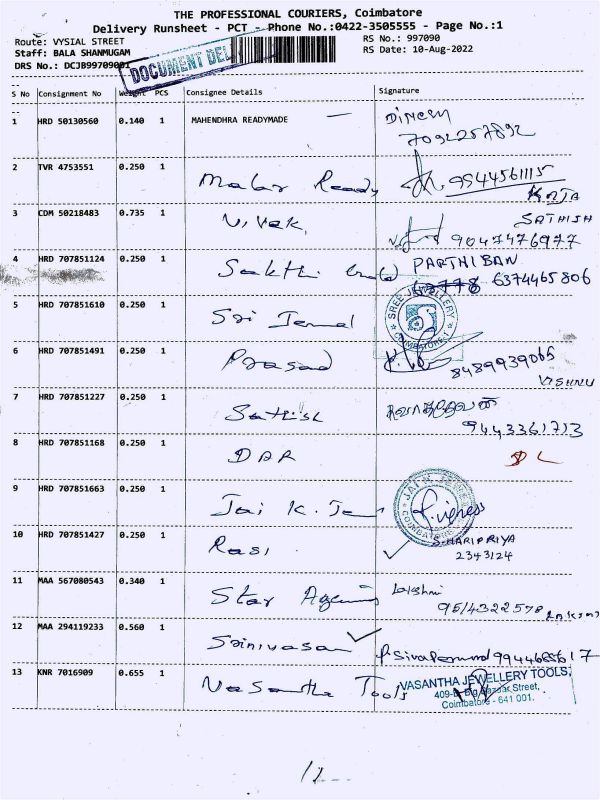 THE PROFESSIONAL COURIERS, Coimbatore
Delivery Runsheet - PCT - Phone No.:0422-3505555 - Page No.:1
Route: VYSIAL STREET RS No.: 997090
Staff: BALA SHANMUGAM RS Date: 10-Aug-2022
DRS No.: DCJB99709001
DOCUMENT DEL
S No Consignment No Weight PCS Consignee Details Signature
1 HRD 50130560 0.140 1 MAHENDHRA READYMADE DINESH
7092257892
2 TVR 4753551 0.250 1 Malar Ready 9944561115
RAJA
3 CDM 50218483 0.735 1 Vivek. SATHISH
9047476977
4 HRD 707851124 0.250 1 Sakthi PARTHIBAN
6374465806
5 HRD 707851610 0.250 1 Sri SREE JEWELLERY
COIMBATORE-1
6 HRD 707851491 0.250 1 Prasad 8489939065
VISHNU
7 HRD 707851227 0.250 1 Sathish
9443361713
8 HRD 707851168 0.250 1 DAR DL
9 HRD 707851663 0.250 1 Jai K. JAI K. JEWEL
COIMBATORE
10 HRD 707851427 0.250 1 Rasi S.HARIPRIYA
2343124
11 MAA 567080543 0.340 1 Star Agency Lakshmi
9514322578
12 MAA 294119233 0.560 1 Srinivasan
13 KNR 7016909 0.655 1 Vasantha Tools VASANTHA JEWELLERY TOOLS,
409- Big Bazaar Street,
Coimbatore - 641 001.